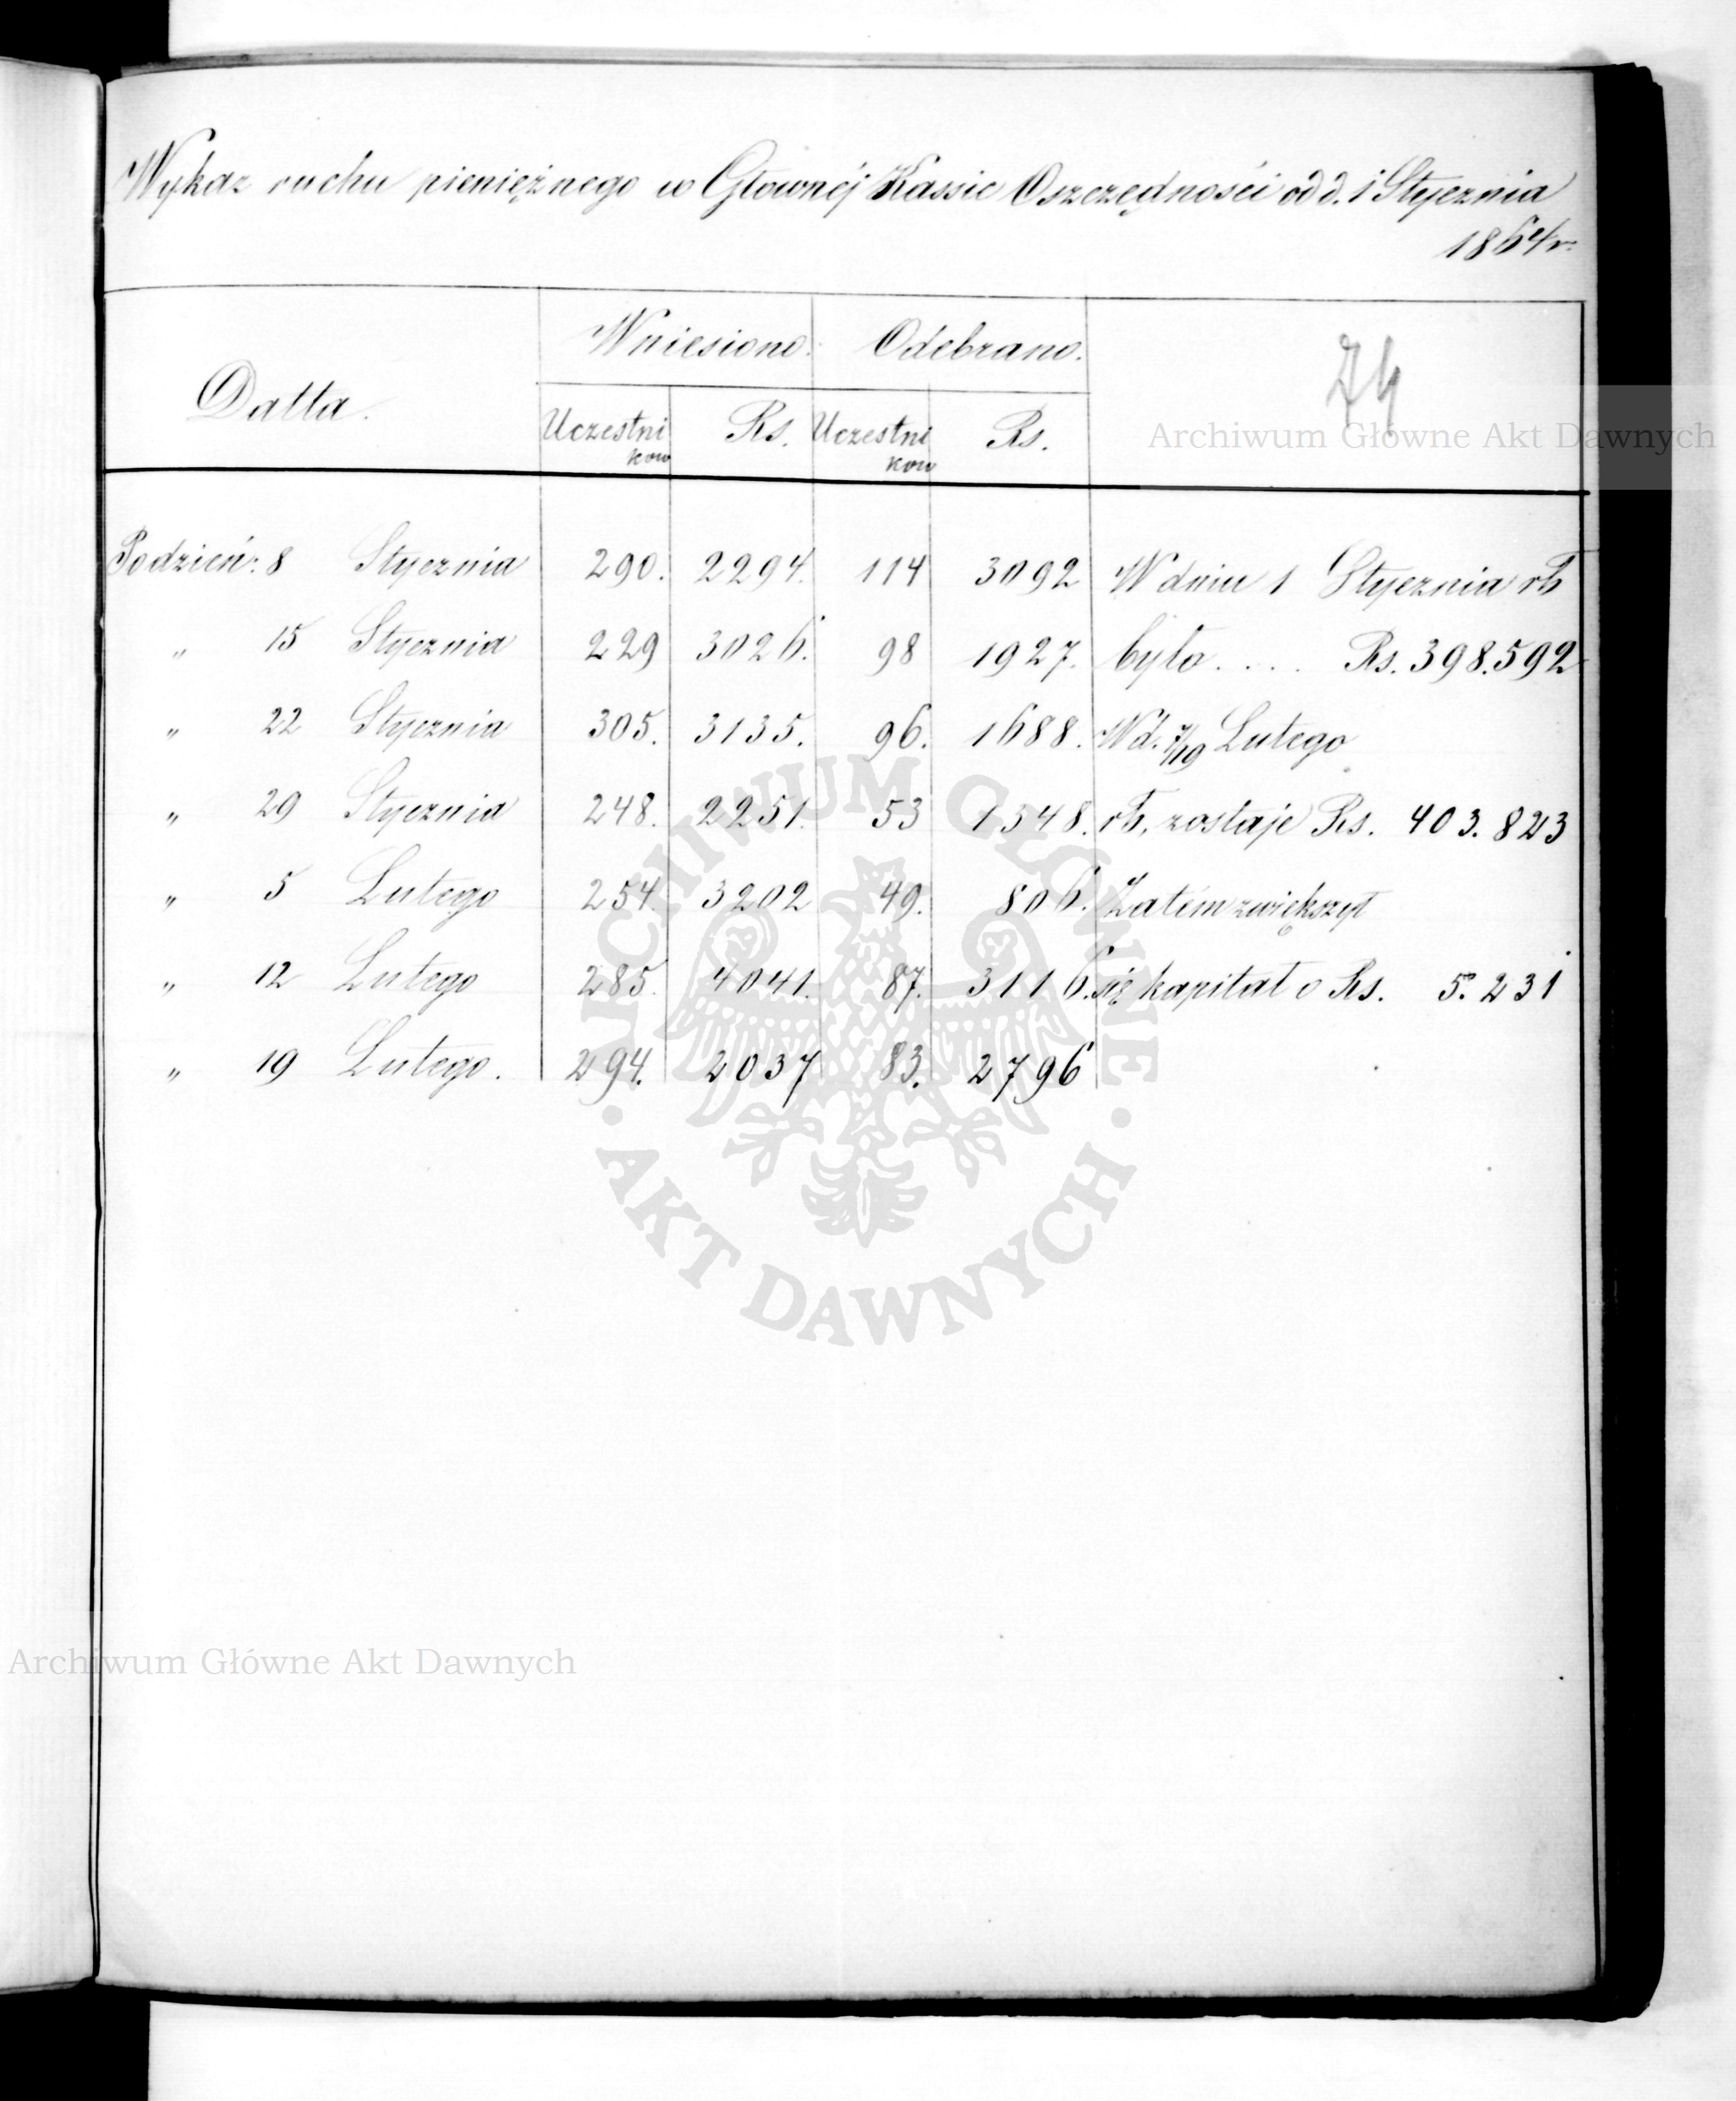 Wykaz ruchu pieniężnego w Głównéj Kassie Oszczędności od d. 1 Stycznia
1864 r.
Datta. Wniesiono. Odebrano. 74
Archiwum Główne Akt Dawnych
Uczestni Rs. Uczestni Rs.
kow kow
Podzień: 8 Stycznia 290. 2294. 114 3092 W dniu 1 Stycznia rb
" 15 Stycznia 229 3026. 98 1927. było . . . . Rs. 398.592
" 22 Stycznia 305. 3135. 96. 1688. W d. 7/19 Lutego
" 29 Stycznia 248. 2251. 53 1348. rb. zostaje Rs. 403.823
" 5 Lutego 254. 3202 49. 806. Zatém zwiększył
" 12 Lutego 285. 4041. 87. 3116. się kapitał o Rs. 5.231
" 19 Lutego. 294. 2037 83. 2796
ARCHIWUM GŁÓWNE
· AKT DAWNYCH ·
Archiwum Główne Akt Dawnych